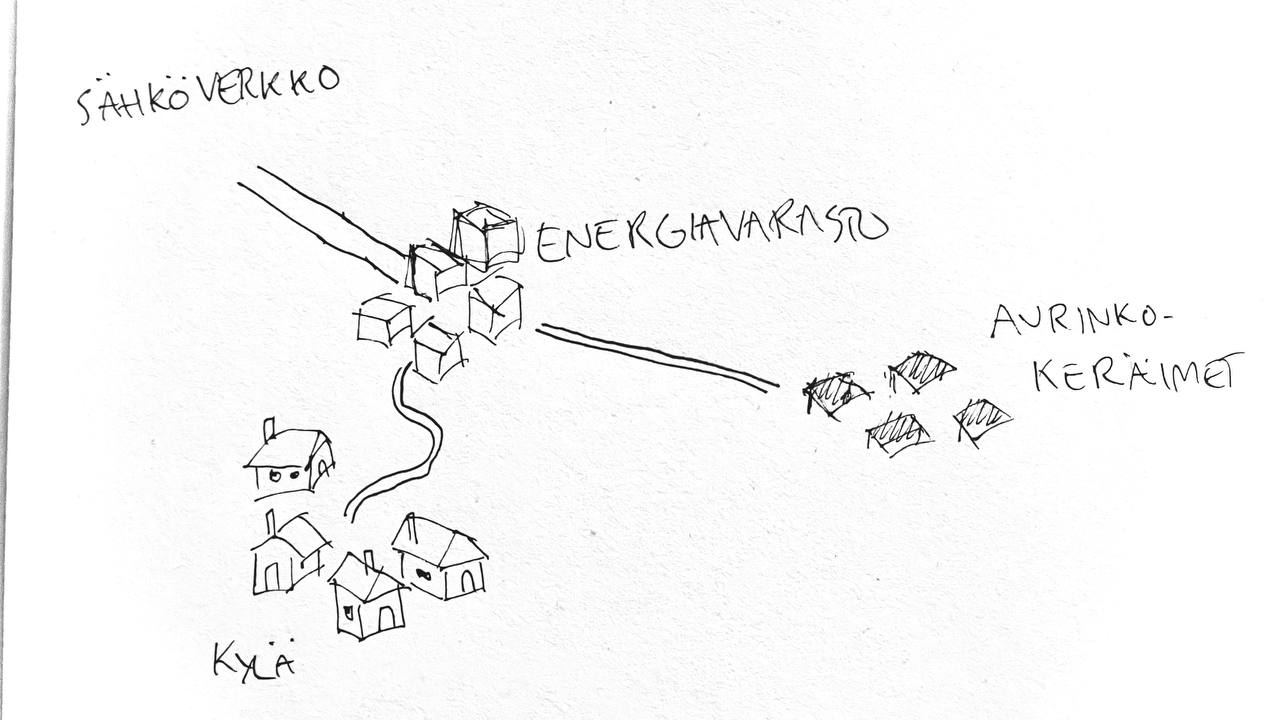 SÄHKÖVERKKO
ENERGIAVARASTO
AURINKO-
KERÄIMET
KYLÄ